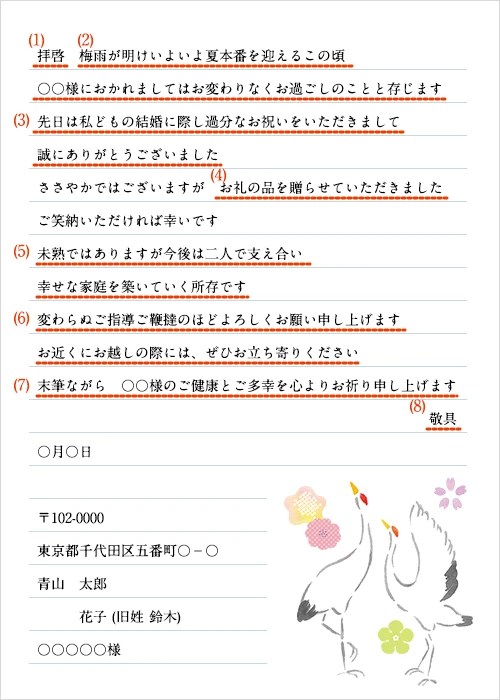 (1) (2)
拝啓　梅雨が明けいよいよ夏本番を迎えるこの頃
〇〇様におかれましてはお変わりなくお過ごしのことと存じます
(3) 先日は私どもの結婚に際し過分なお祝いをいただきまして
誠にありがとうございました
ささやかではございますが (4) お礼の品を贈らせていただきました
ご笑納いただければ幸いです
(5) 未熟ではありますが今後は二人で支え合い
幸せな家庭を築いていく所存です
(6) 変わらぬご指導ご鞭撻のほどよろしくお願い申し上げます
お近くにお越しの際には、ぜひお立ち寄りください
(7) 末筆ながら　〇〇様のご健康とご多幸を心よりお祈り申し上げます
(8) 敬具
〇月〇日
〒102-0000
東京都千代田区五番町〇－〇
青山　太郎
花子 (旧姓 鈴木)
〇〇〇〇〇様